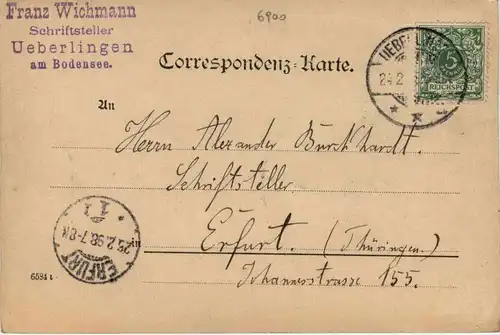 Franz Wichmann
Schriftsteller
Ueberlingen
am Bodensee.
6900
Correspondenz-Karte.
5
REICHSPOST
24 2
An
Herrn Alexander Burckhardt.
Schriftsteller
in
Erfurt. (Thüringen.)
Johannesstrasse 155.
ERFURT
25.2.98.7-8N
* 1 1
6584 t